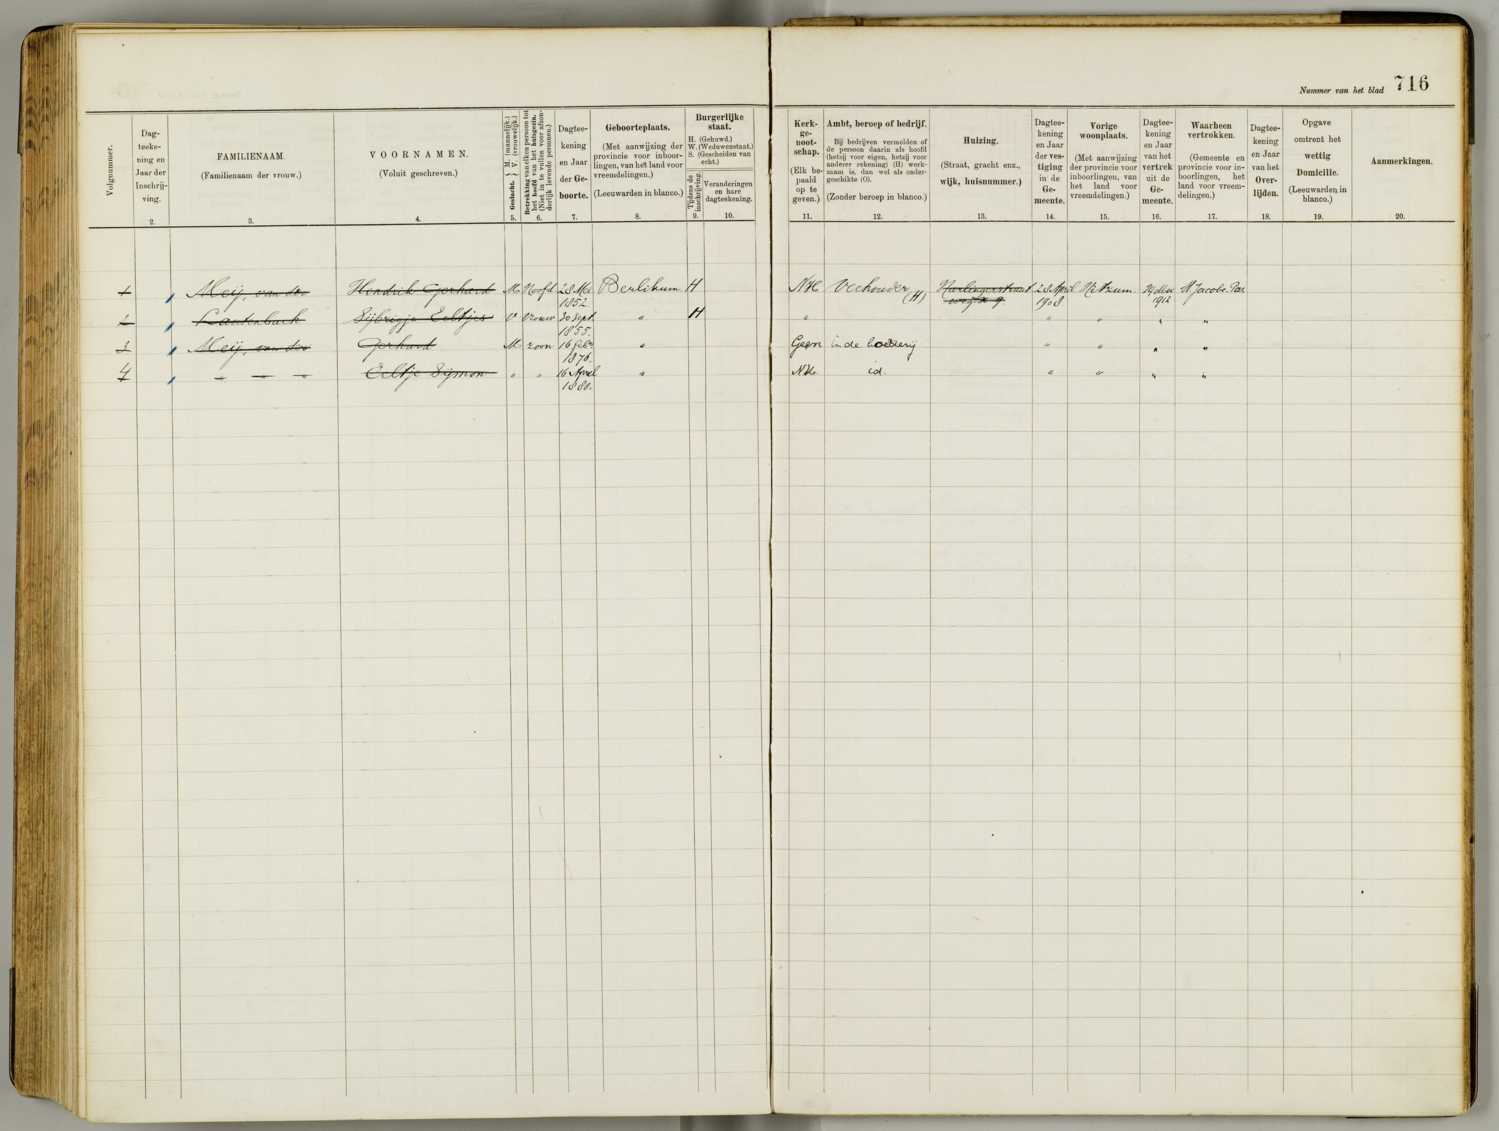 Nummer van het blad 716
Volgnummer.
Dag-
teeke-
ning en
Jaar der
Inschrij-
ving.
2.
FAMILIENAAM.
(Familienaam der vrouw.)
3.
VOORNAMEN.
(Voluit geschreven.)
4.
Geslacht. } M. (mannelijk.) V. (vrouwelijk.)
5.
Betrekking van elken persoon tot
het hoofd van het huisgezin.
(Niet in te vullen voor afzon-
derlijk levende personen.)
6.
Dagtee-
kening
en Jaar
der Ge-
boorte.
7.
Geboorteplaats.
(Met aanwijzing der
provincie voor inboor-
lingen, van het land voor
vreemdelingen.)
(Leeuwarden in blanco.)
8.
Burgerlijke
staat.
H. (Gehuwd.)
W. (Weduwenstaat.)
S. (Gescheiden van
echt.)
Tijdens de
inschrijving.
9.
Veranderingen
en hare
dagteekening.
10.
Kerk-
ge-
noot-
schap.
(Elk be-
paald
op te
geven.)
11.
Ambt, beroep of bedrijf.
Bij bedrijven vermelden of
de persoon daarin als hoofd
(hetzij voor eigen, hetzij voor
anderer rekening) (H) werk-
zaam is, dan wel als onder-
geschikte (O).
(Zonder beroep in blanco.)
12.
Huizing.
(Straat, gracht enz.,
wijk, huisnummer.)
13.
Dagtee-
kening
en Jaar
der ves-
tiging
in de
Ge-
meente.
14.
Vorige
woonplaats.
(Met aanwijzing
der provincie voor
inboorlingen, van
het land voor
vreemdelingen.)
15.
Dagtee-
kening
en Jaar
van het
vertrek
uit de
Ge-
meente.
16.
Waarheen
vertrokken.
(Gemeente en
provincie voor in-
boorlingen, het
land voor vreem-
delingen.)
17.
Dagtee-
kening
en Jaar
van het
Over-
lijden.
18.
Opgave
omtrent het
wettig
Domicilie.
(Leeuwarden in
blanco.)
19.
Aanmerkingen.
20.
1 Meij, van der Hendrik Gerhard M Hoofd 28 Mei 1852 Berlikum H NH Veehouder (H) Harlingerstraat weg 9 28 April 1908 Metsum 1912 St Jacobi Par
2 Lautenbach Sijbrigje Eeltjes V Vrouw 30 Sept. 1855. " H " " " " "
3 Meij, van der Gerhard M zoon 16 Febr 1876. " Geen in de boederij " " " "
4 – – – Eeltje Sijmon " " 16 April 1880. " NH id. " " " "